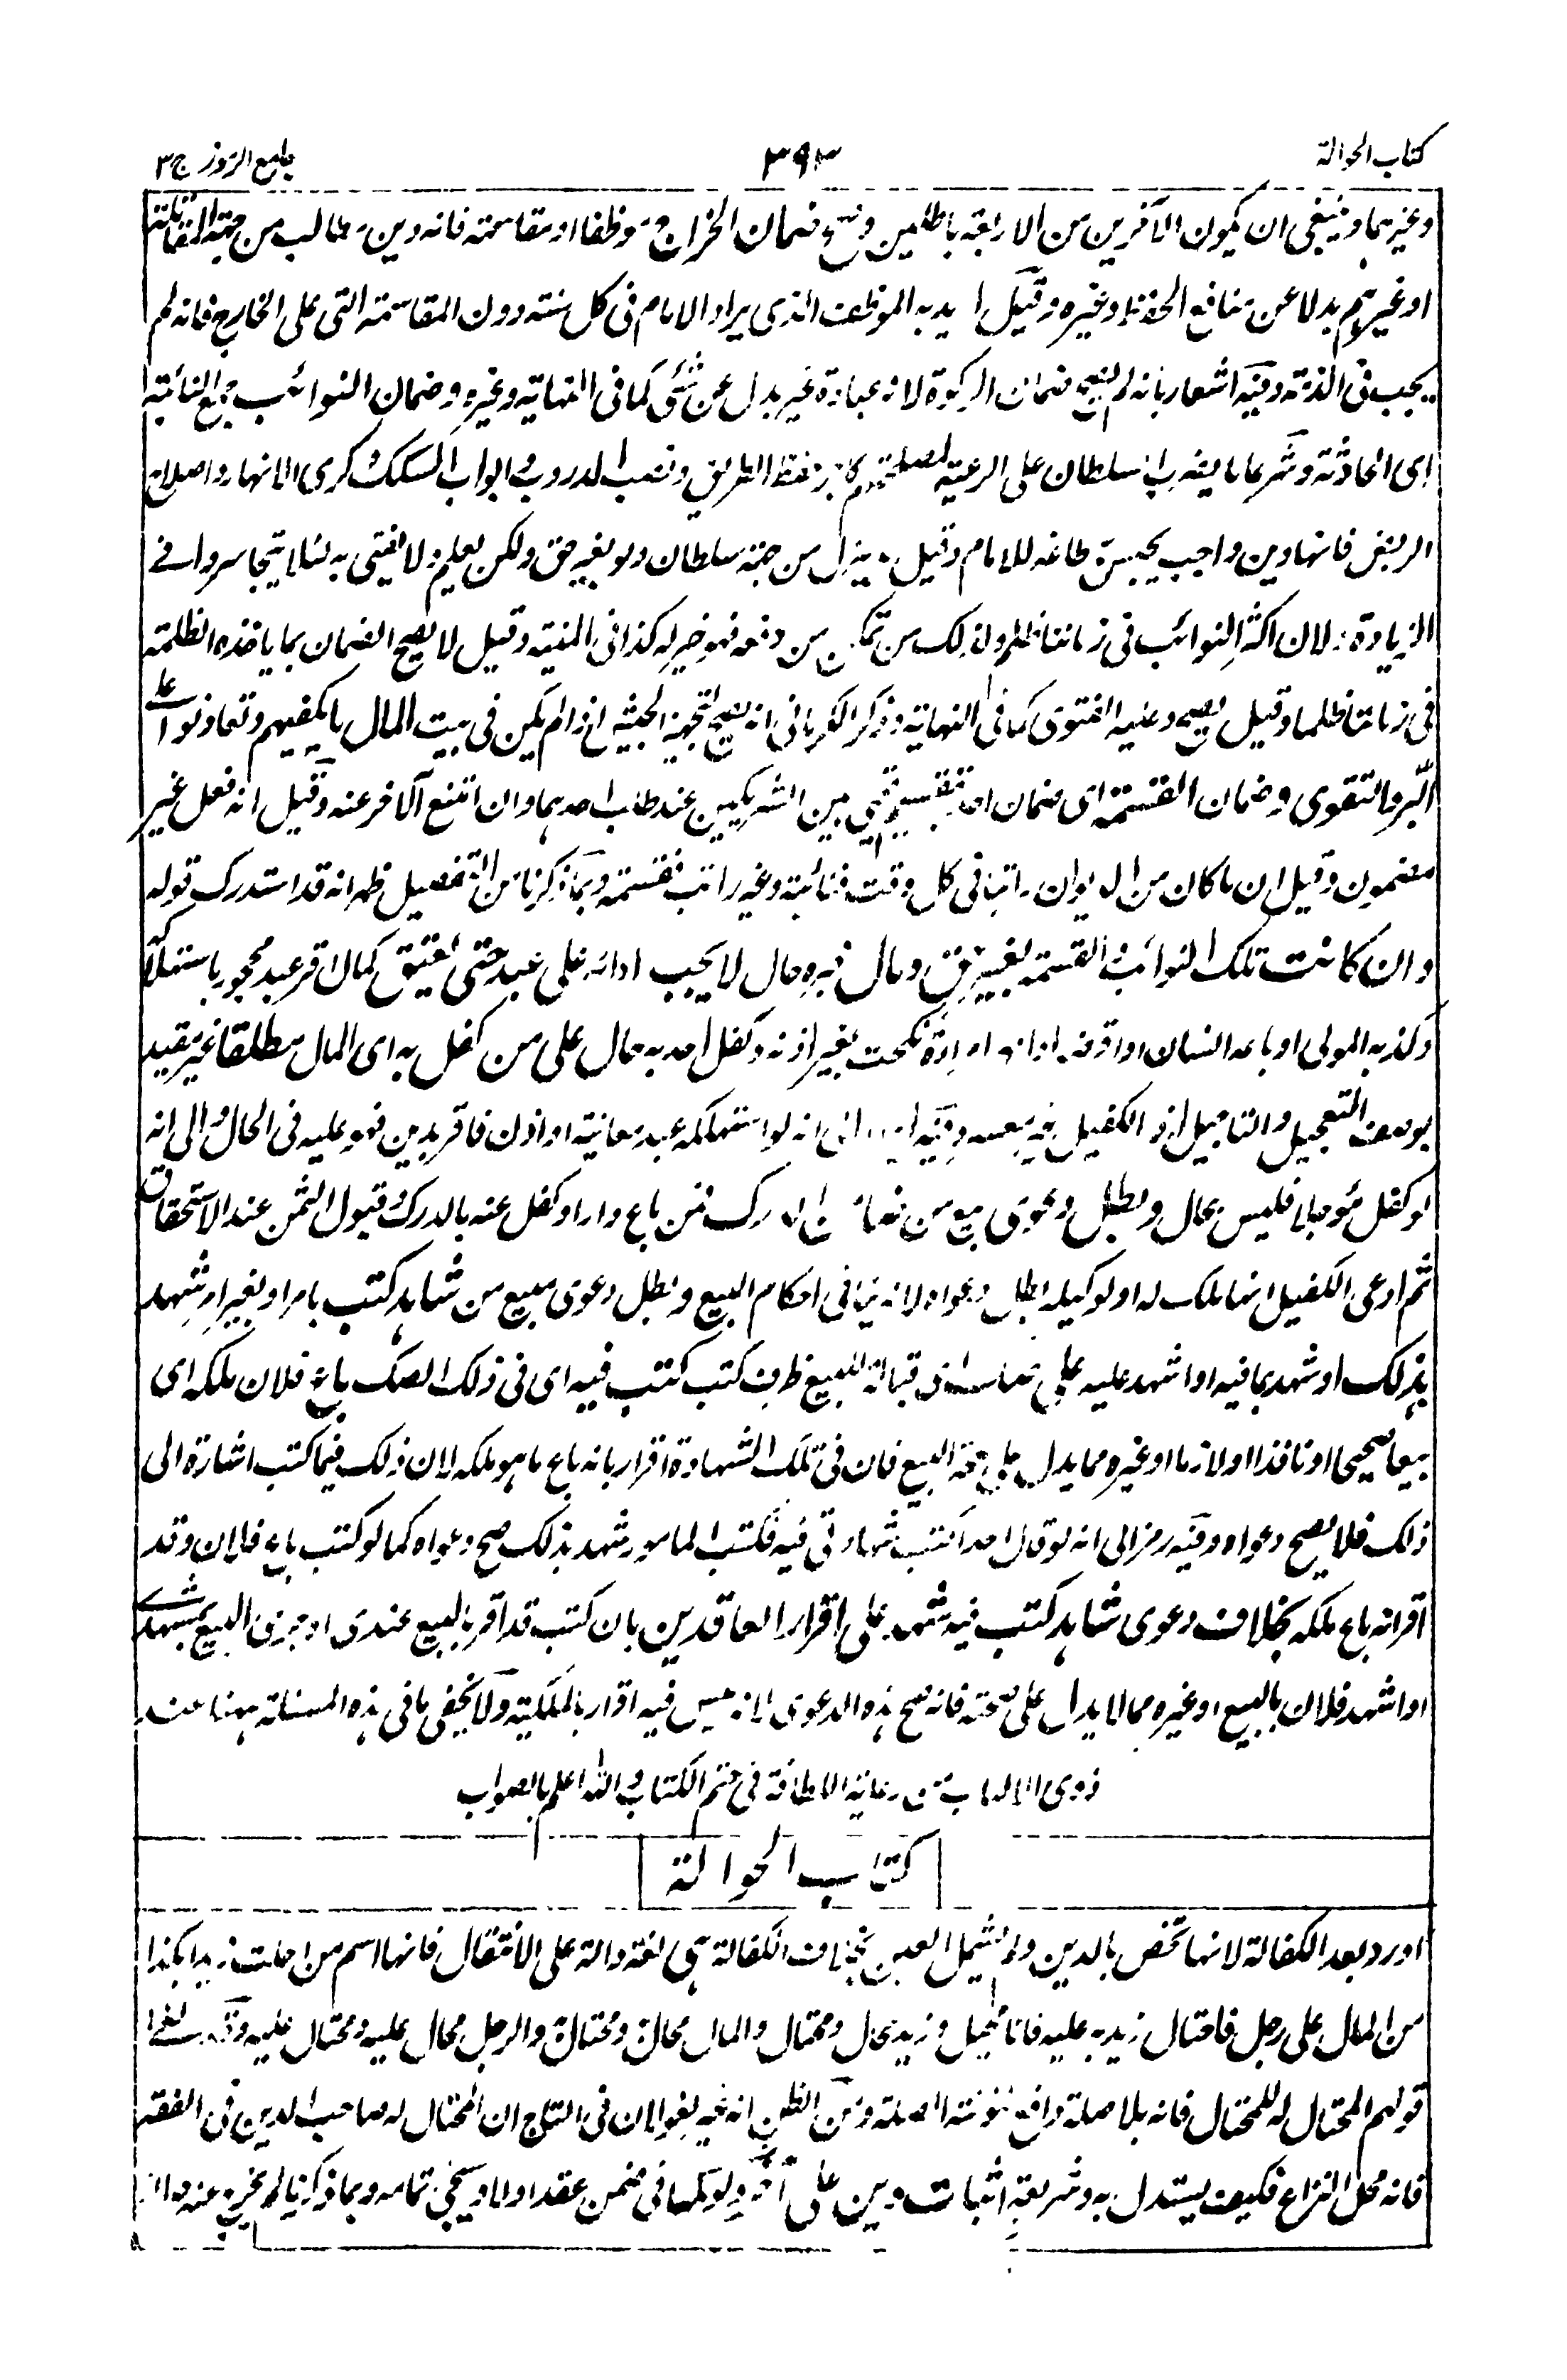 كتاب الحوالة
٣٩٣
جامع الرموز ج ٣
وغيرهما وينبغي ان يكون الآخرين من الاربعة باطلين وصح ضمان الخراج موظفا او مقاسمة فانه دين مطالب من جهة المقاتلة
او غيرهم بدلا عن منافع الحفظ وغيره وقيل اريد به الموظف الذي يراد الامام في كل سنة دون المقاسمة التي على الخارج فانه لم
يجب في الذمة وفيه اشعار بانه لم يصح ضمان الزكوة لانه عبادة غير بدل عن شئ كما في النهاية وغيره وضمان النوائب جمع النائبة
اي الحادثة وشرعا ما يضرب السلطان على الرعية لمصلحتهم كاجر حفظ الطريق ونصب الدروب وابواب السكك وكرى الانهار واصلاح
الربض فانها دين واجب يجب طاعة للامام وقيل ما ينزل من جهة سلطان ولو بغير حق ولكن يعلم ولا يفتى به لئلا يتجاسروا في
الزيادة لان اكثر النوائب في زماننا ظلم ولذلك من تمكن من دفعه فهو خير له كذا في المنية وقيل لا يصح الضمان بما ياخذه الظلمة
في زماننا ظلما وقيل يصح وعليه الفتوى كما في النهاية وذكر الكرماني انه يصح لتجهيز الجيش اذ لم يكن في بيت المال ما يكفيهم وتعاونوا على
البر والتقوى وضمان القسمة اي ضمان ان بين الشريكين عند طلب احدهما وان امتنع الآخر عنه وقيل انه فعل غير
مضمون وقيل ان ما كان من الديوان راتبا في كل وقت فنائبة وغير راتب فقسمة وبما ذكرنا من التفصيل ظهر انه قد استدرك قوله
وان كانت تلك النوائب والقسمة بغير حق ومال خبره حال لا يجب اداؤه على عبد حتى يعتق كمال اقر عبد محجور باستهلاكه
وكذبه المولى او باعه انسان او اقرضه او امرأة نكحت بغير اذنه وكفل احد به حال على من كفل به اي المال مطلقا غير مقيد
بوصف التعجيل والتاجيل اذ الكفيل غير معسر وفيه انه لو استهلكه عبد معاينة او اذن فاقر بدين فهو عليه في الحال والى انه
لو كفل مؤجلا فليس بحال وبطل دعوى بيع من ضمان الدرك فمن باع دارا وكفل عنه بالدرك قبول الثمن عند الاستحقاق
ثم ادعى الكفيل انها ملك له او لوكيله ابطل دعواه لانه ينافي احكام البيع وبطل دعوى مبيع من شاهد كتب بامر او بغير امر شهد
بذلك او شهد بما فيه او اشهد عليه على قبالة البيع ظرف كتب كتب فيه اي في ذلك الصك باع فلان ملكه اي
بيعا صحيحا او نافذا او لازما او غيره مما يدل على صحة البيع فان في تلك الشهادة اقرار بانه باع ما هو ملكه لان ذلك فيما كتب اشارة الى
ذلك فلا يصح دعواه وفيه رمز الى انه لو قال احد اكتب شهادتي فيه فكتب المامور شهد بذلك صح دعواه كما لو كتب باع فلان وقد
اقر انه باع ملكه بخلاف دعوى شاهد كتب فيه شهد على اقرار العاقدين بان كتب قد اقر بالبيع عندي او جرى البيع بمشهدي
او اشهد فلان بالبيع او غيره مما لا يدل على صحته فانه صح هذه الدعوى اذ ليس فيه اقرار بالملكية ولا يخفى ما في هذه المسئلة ههنا عند
ذوي الالباب من رعاية اللطافة في ختم الكتاب والله اعلم بالصواب
كتاب الحوالة
اورد بعد الكفالة لانها تختص بالدين ولم يشمل العين بخلاف الكفالة هي لغة دالة على الانتقال فانها اسم من احلت زيدا بكذا
من المال على رجل فاحتال زيد به عليه فانا محيل وزيد محال ومحتال والمال محال به ومحتال به والرجل محال عليه ومحتال عليه
قولهم المحتال له للمحتال فانه بلا صلة وافع الصلة ومن الظن انه غير لغو لان في التاج ان المحتال له صاحب الدين في الفقه
فانه محل النزاع فكيف يستدل به وشريعة اثبات دين على آخر ولو كما في ضمن عقد او لا وسيجئ تمامه وبما ذكرنا لم يخرج عنه